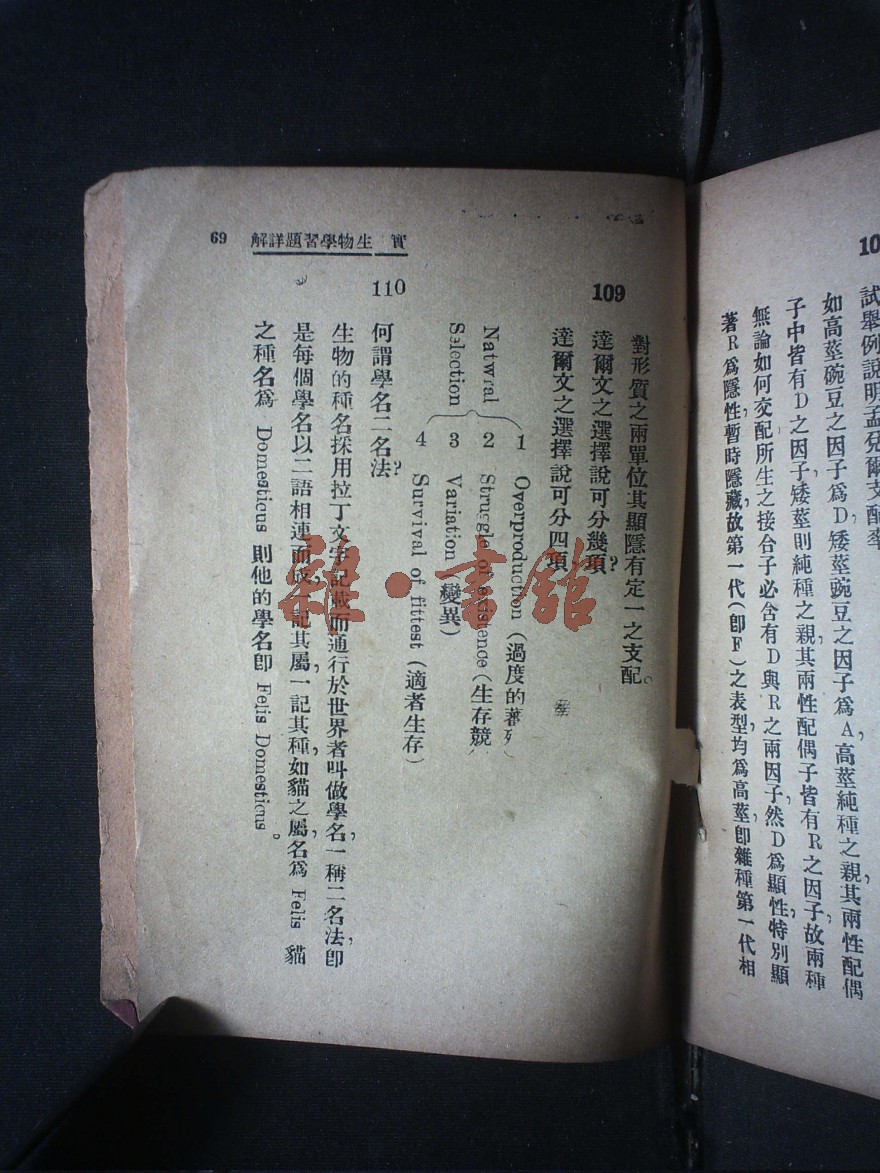 試舉例說明孟兒爾支配率
如高莖碗豆之因子爲D,矮莖豌豆之因子爲A,高莖純種之親其兩性配偶
子中皆有D之因子,矮莖則純種之親,其兩性配偶子皆有R之因子,故兩種
無論如何交配所生之接合子必含有D與R之兩因子,然D爲顯性,特別顯
著R爲隱性,暫時隱藏,故第一代(卽F)之表型,均爲高莖,卽雜種第一代相
對形質之兩單位其顯隱有定一之支配。
109
達爾文之選擇說可分幾項?
達爾文之選擇說可分四項、
Natwral
Selection
1 Overproduction(過度的蕃
2 Struggle of existence(生存競
3 Variation(變異)
4 Survival of fittest(適者生存)
110
何謂學名二名法?
生物的種名採用拉丁文字記載而通行於世界者叫做學名,一稱二名法,卽
是每個學名以二語相連而成,一記其屬,一記其種,如貓之屬名爲 Felis 貓
之種名爲 Domesticus 則他的學名卽 Felis Domesticus。
實 生物學習題詳解
69
雜·書館